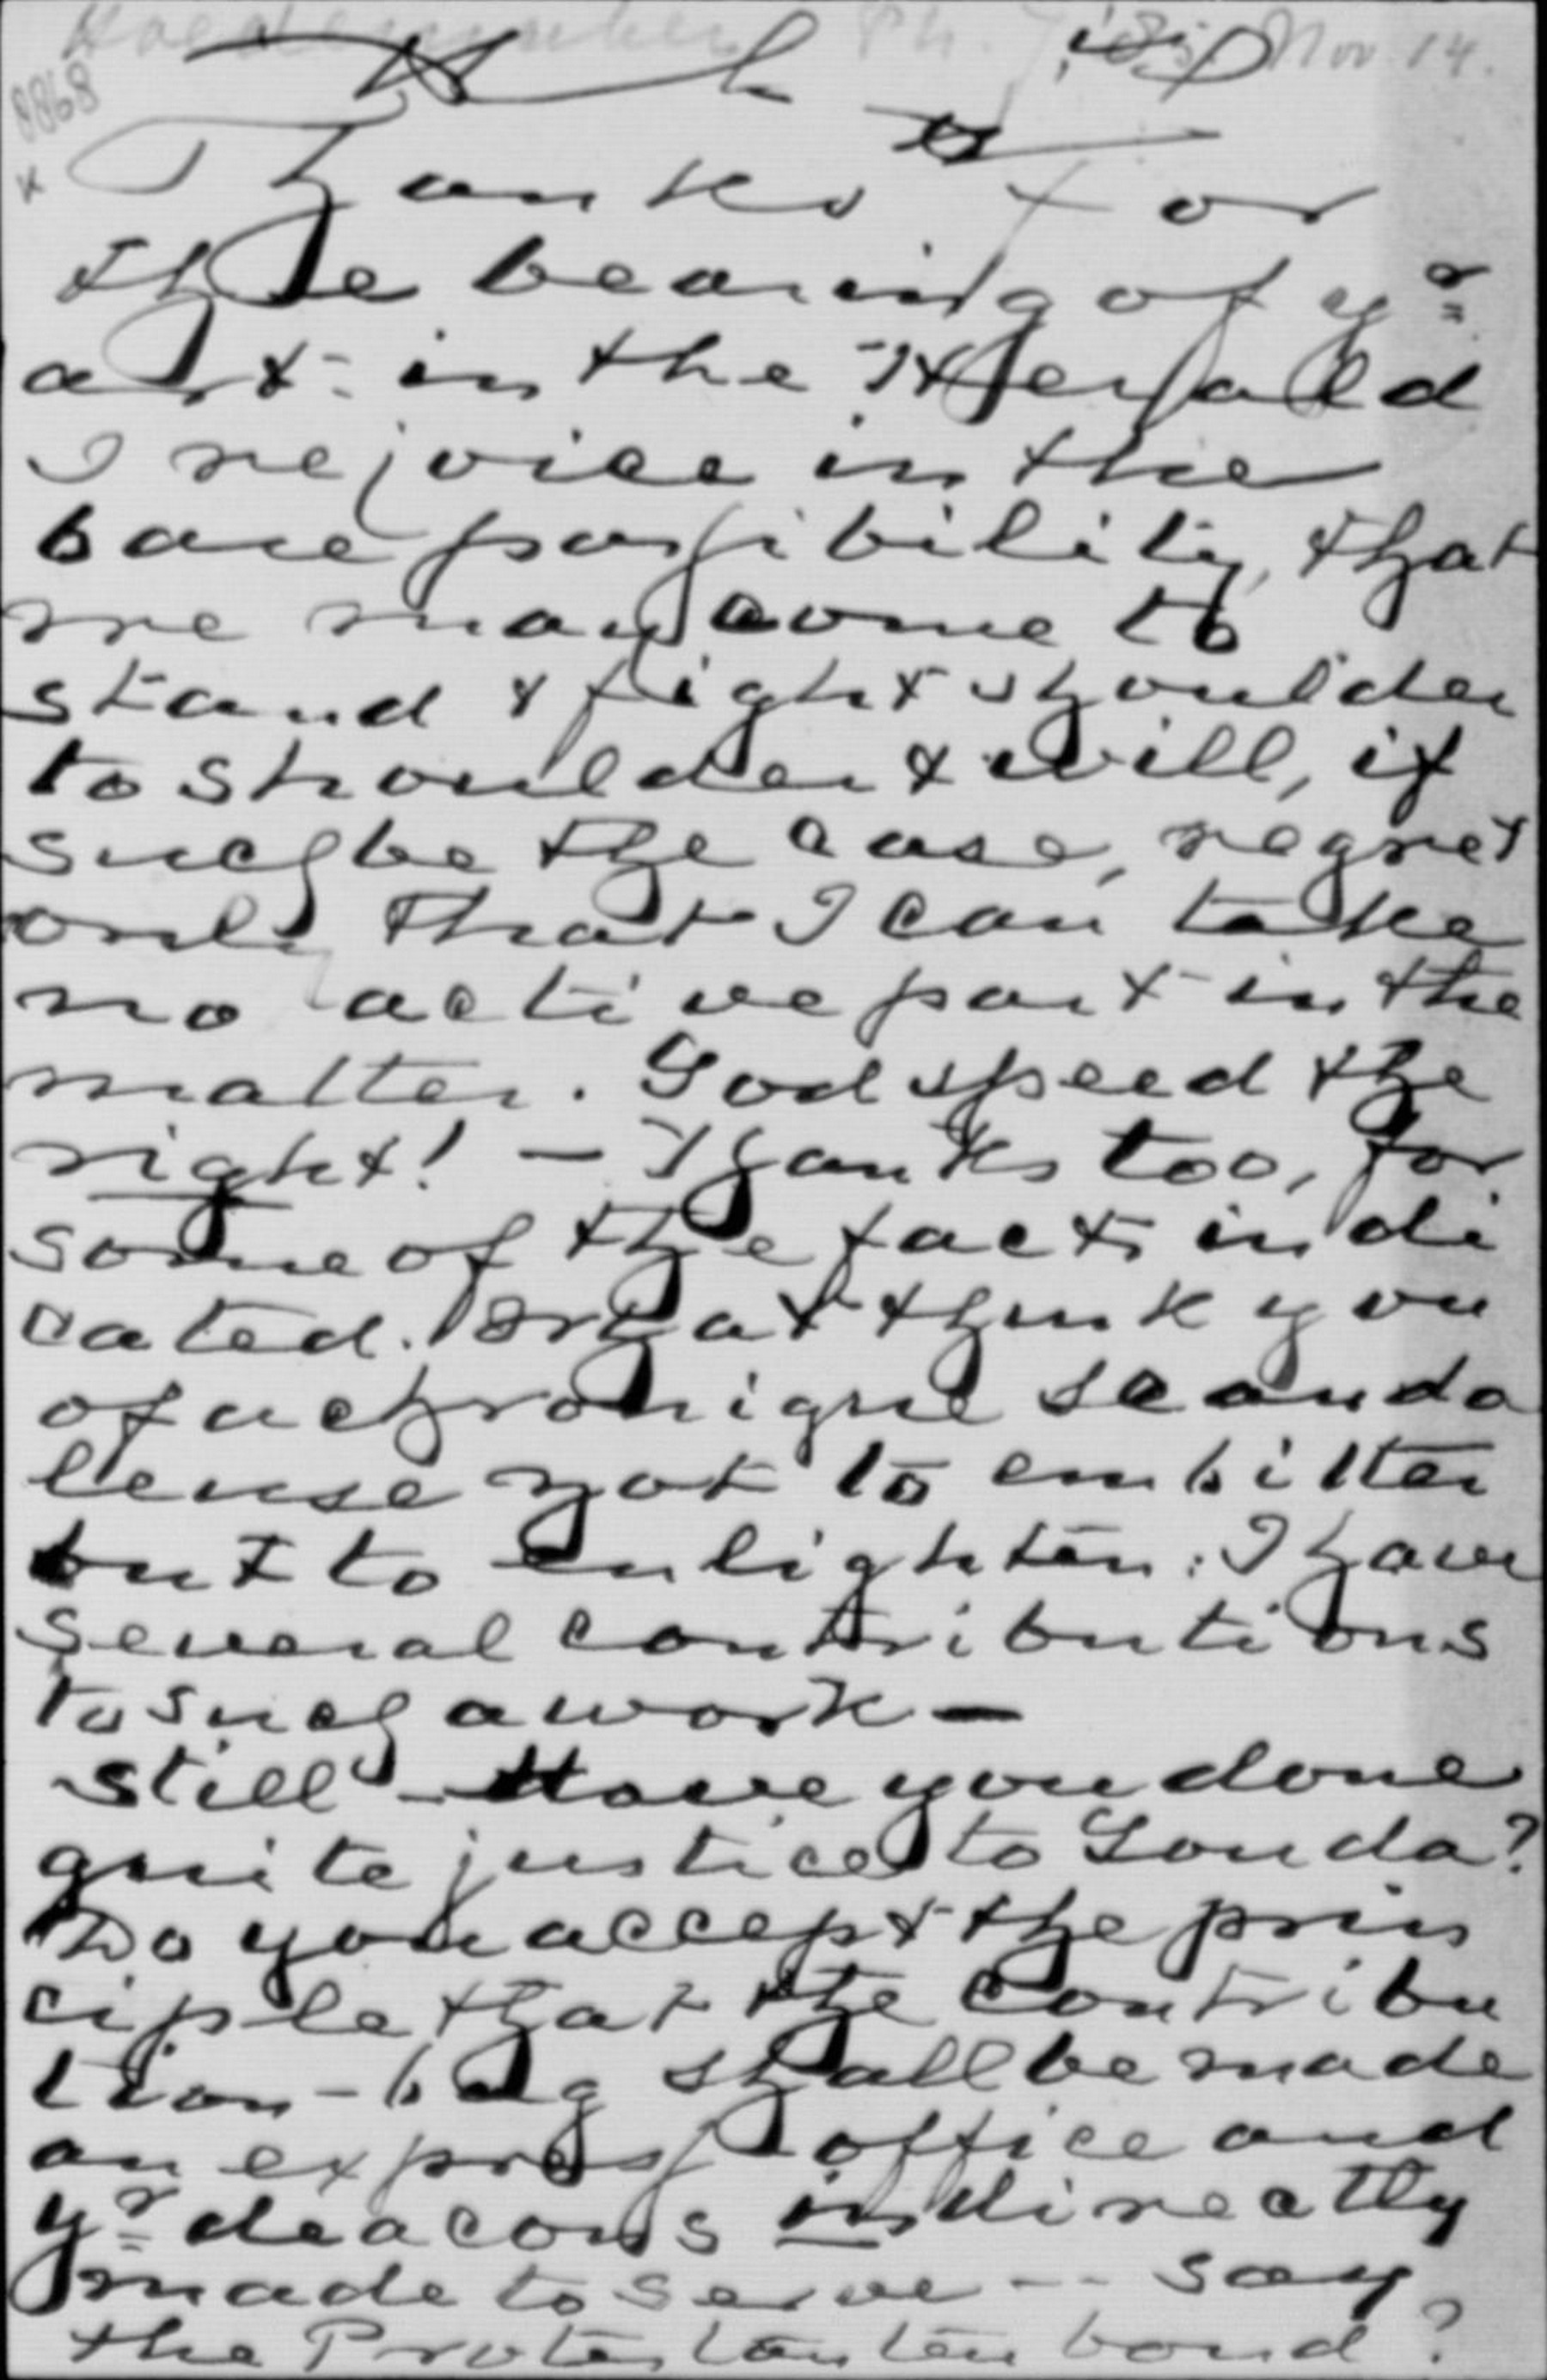 Nov. 14.
8868
Thanks for
the bearing of yr
art. in the Herald
I rejoice in the
bare possibility, that
we may come to
stand & fight shoulder
to shoulder & will, if
such be the case, regret
only that I can take
no active part in the
matter. God speed the
right! — Thanks too, for
some of the facts indi
cated. What think you
of a chronique scanda
leuse not to embitter
but to enlighten: I have
several contributions
to such a work —
still - Have you done
quite justice to Gouda?
Do you accept the prin
ciple that the contribu
tion - bag shall be made
an express office and
yr deacons indirectly
made to serve -- say
the Protestantenbond?